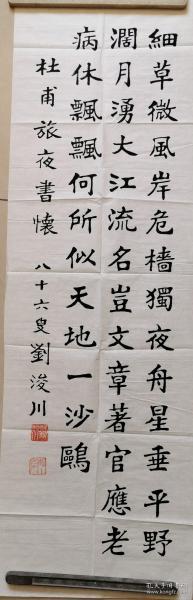 細草微風岸危檣獨夜舟星垂平野
濶月湧大江流名豈文章著官應老
病休飄飄何所似天地一沙鷗
杜甫旅夜書懷 八十六叟劉浚川